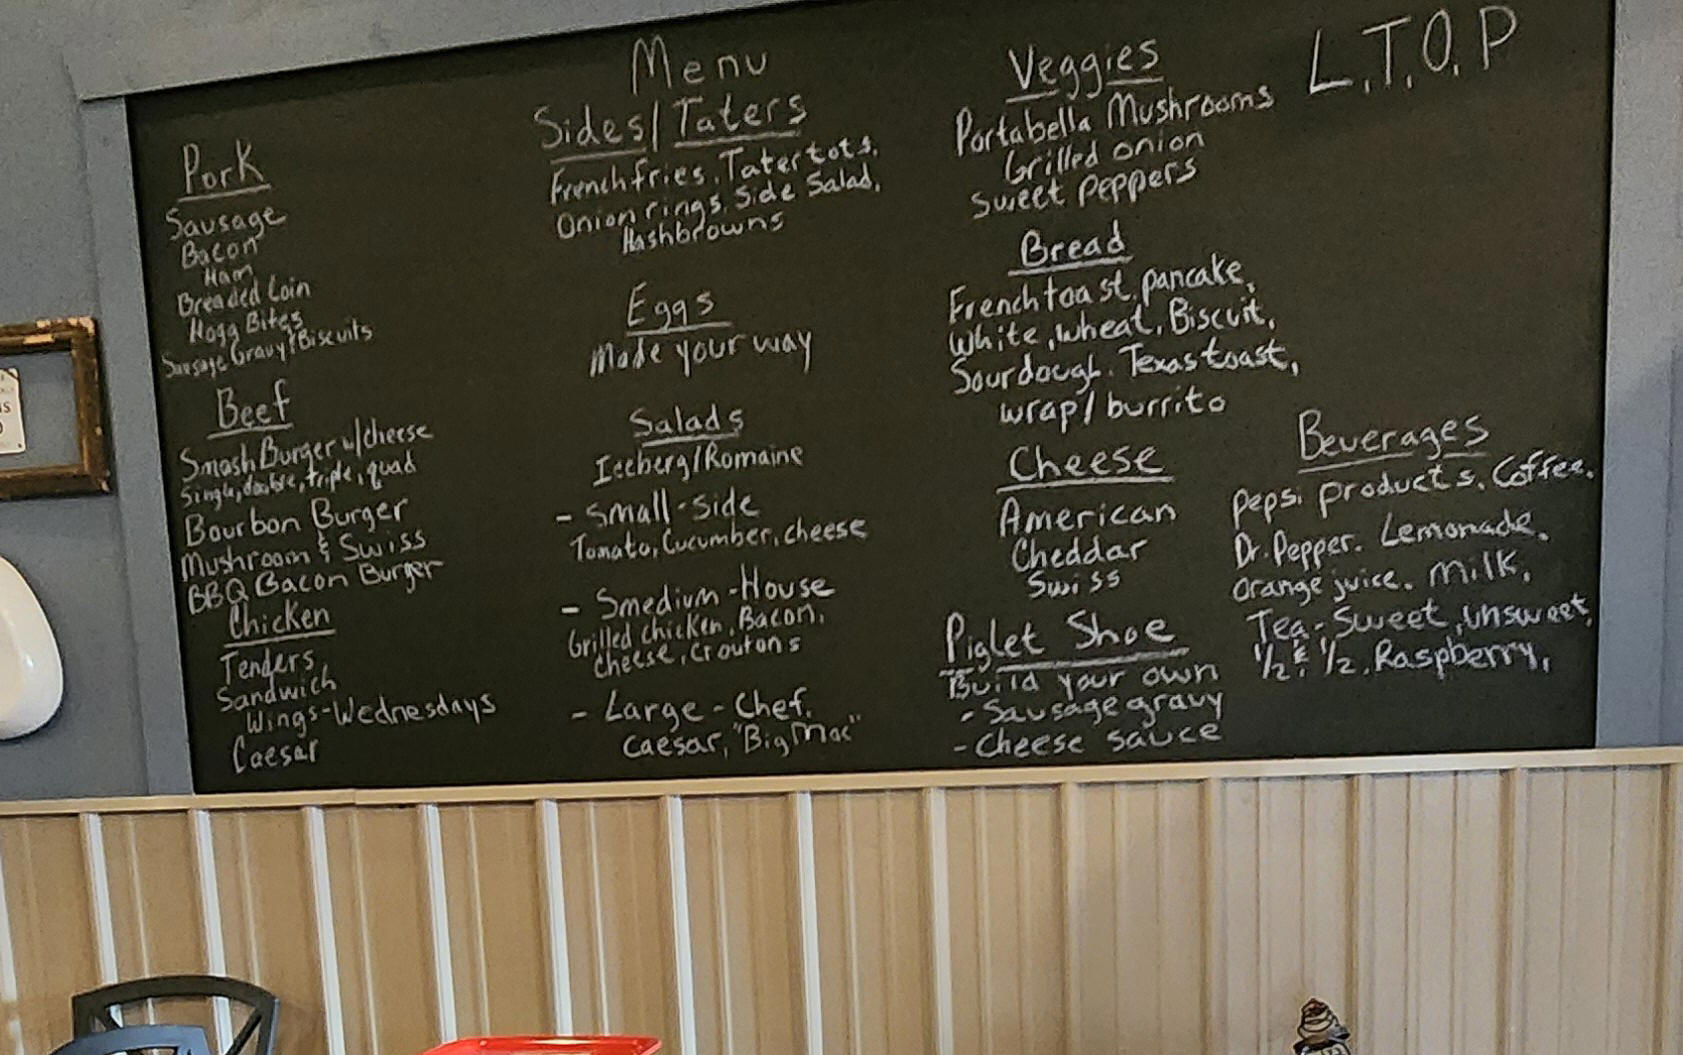 Menu
Pork
Sausage
Bacon
Ham
Breaded Loin
Hogg Bites
Sausage Gravy/Biscuits
Beef
Smash Burger w/cheese
Single, double, triple, quad
Bourbon Burger
Mushroom & Swiss
BBQ Bacon Burger
Chicken
Tenders,
Sandwich
Wings-Wednesdays
Caesar
Sides/Taters
French fries, Tater tots,
Onion rings, Side Salad,
Hashbrowns
Eggs
Made your way
Salads
Iceberg/Romaine
- Small-side
Tomato, Cucumber, cheese
- Smedium-House
Grilled chicken, Bacon,
cheese, croutons
- Large-Chef,
Caesar, "Big Mac"
Veggies
Portabella Mushrooms
Grilled onion
Sweet peppers
Bread
French toast, pancake,
White, wheat, Biscuit,
Sourdough, Texas toast,
wrap/burrito
Cheese
American
Cheddar
Swiss
Piglet Shoe
Build your own
- Sausage gravy
- Cheese sauce
L.T.O.P
Beverages
Pepsi products, Coffee,
Dr. Pepper, Lemonade,
Orange juice, Milk,
Tea-Sweet, Unsweet,
1/2 & 1/2, Raspberry,